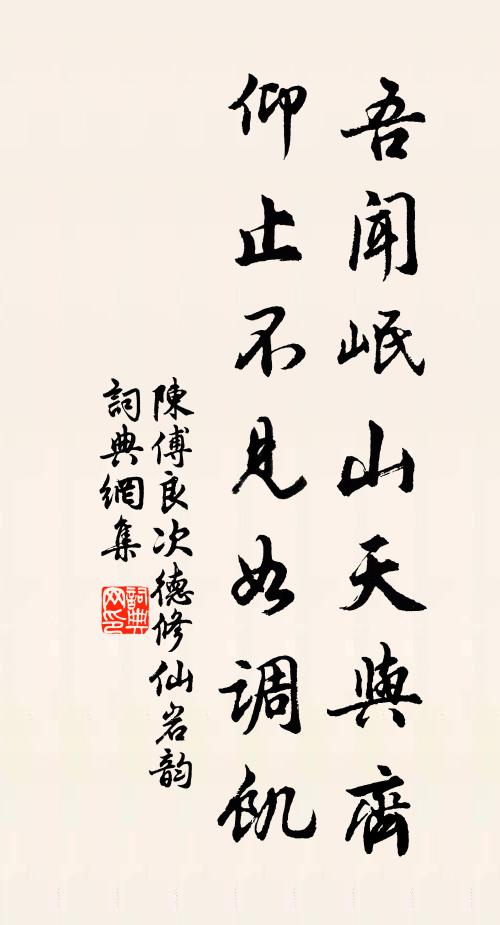 吾聞岷山天與齊
仰止不見如調飢
陳傅良次德修仙岩韵
詞典網集
詞典網印